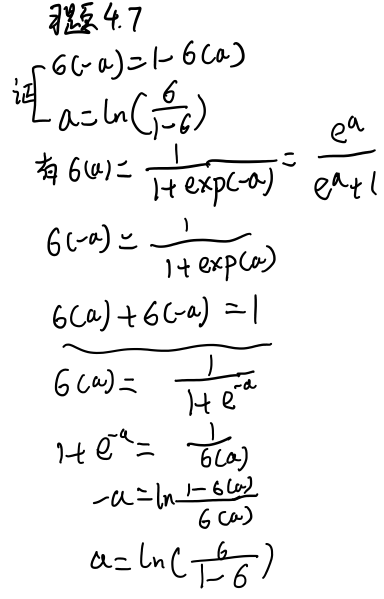 习题 4.7
证 σ(-a)=1-σ(a)
a=ln(σ/(1-σ))
有 σ(a)=1/(1+exp(-a))=e^a/(e^a+1)
σ(-a)=1/(1+exp(a))
σ(a)+σ(-a)=1
σ(a)=1/(1+e^-a)
1+e^-a=1/σ(a)
-a=ln (1-σ(a))/σ(a)
a=ln(σ/(1-σ))